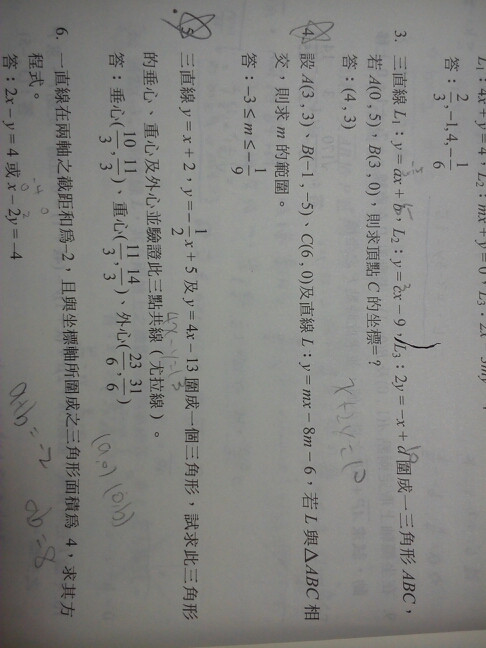 L₁：4x+y=4，L₂：mx+y=0，L₃：2x-3my=4
答：2/3，-1，4，-1/6
3. 三直線 L₁：y=ax+b，L₂：y=cx-9，L₃：2y=-x+d 圍成一三角形 ABC，
若 A(0,5)，B(3,0)，則求頂點 C 的坐標=？
答：(4,3)
x+2y=10
4. 設 A(3,3)、B(-1,-5)、C(6,0)及直線 L：y=mx-8m-6，若 L 與△ABC 相
交，則求 m 的範圍。
答：-3≤m≤-1/9
5. 三直線 y=x+2，y=-1/2x+5 及 y=4x-13 圍成一個三角形，試求此三角形
4x-y=13
的垂心、重心及外心並驗證此三點共線（尤拉線）。
答：垂心(10/3,11/3)、重心(11/3,14/3)、外心(23/6,31/6)
(a,0) (0,b)
6. 一直線在兩軸之截距和為-2，且與坐標軸所圍成之三角形面積為 4，求其方
程式。
-4 0
0 2
答：2x-y=4 或 x-2y=-4
a+b=-2
ab=-8